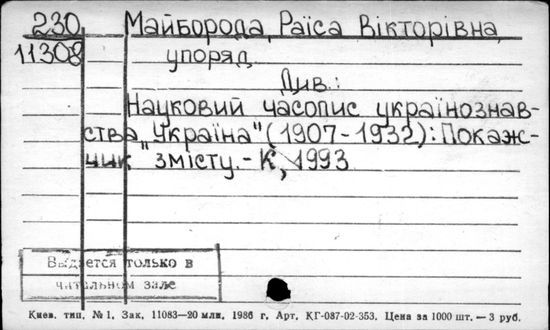 230 Майборода, Раїса Вікторівна,
11308 упоряд.
Див.:
Науковий часопис українознав-
ства „Україна" (1907-1932): Покаж-
чик змісту.- К, 1993
Выдается только в
читальном зале
Киев. тип. № 1. Зак. 11083—20 млн. 1986 г. Арт. КГ-087-02-353. Цена за 1000 шт. — 3 руб.